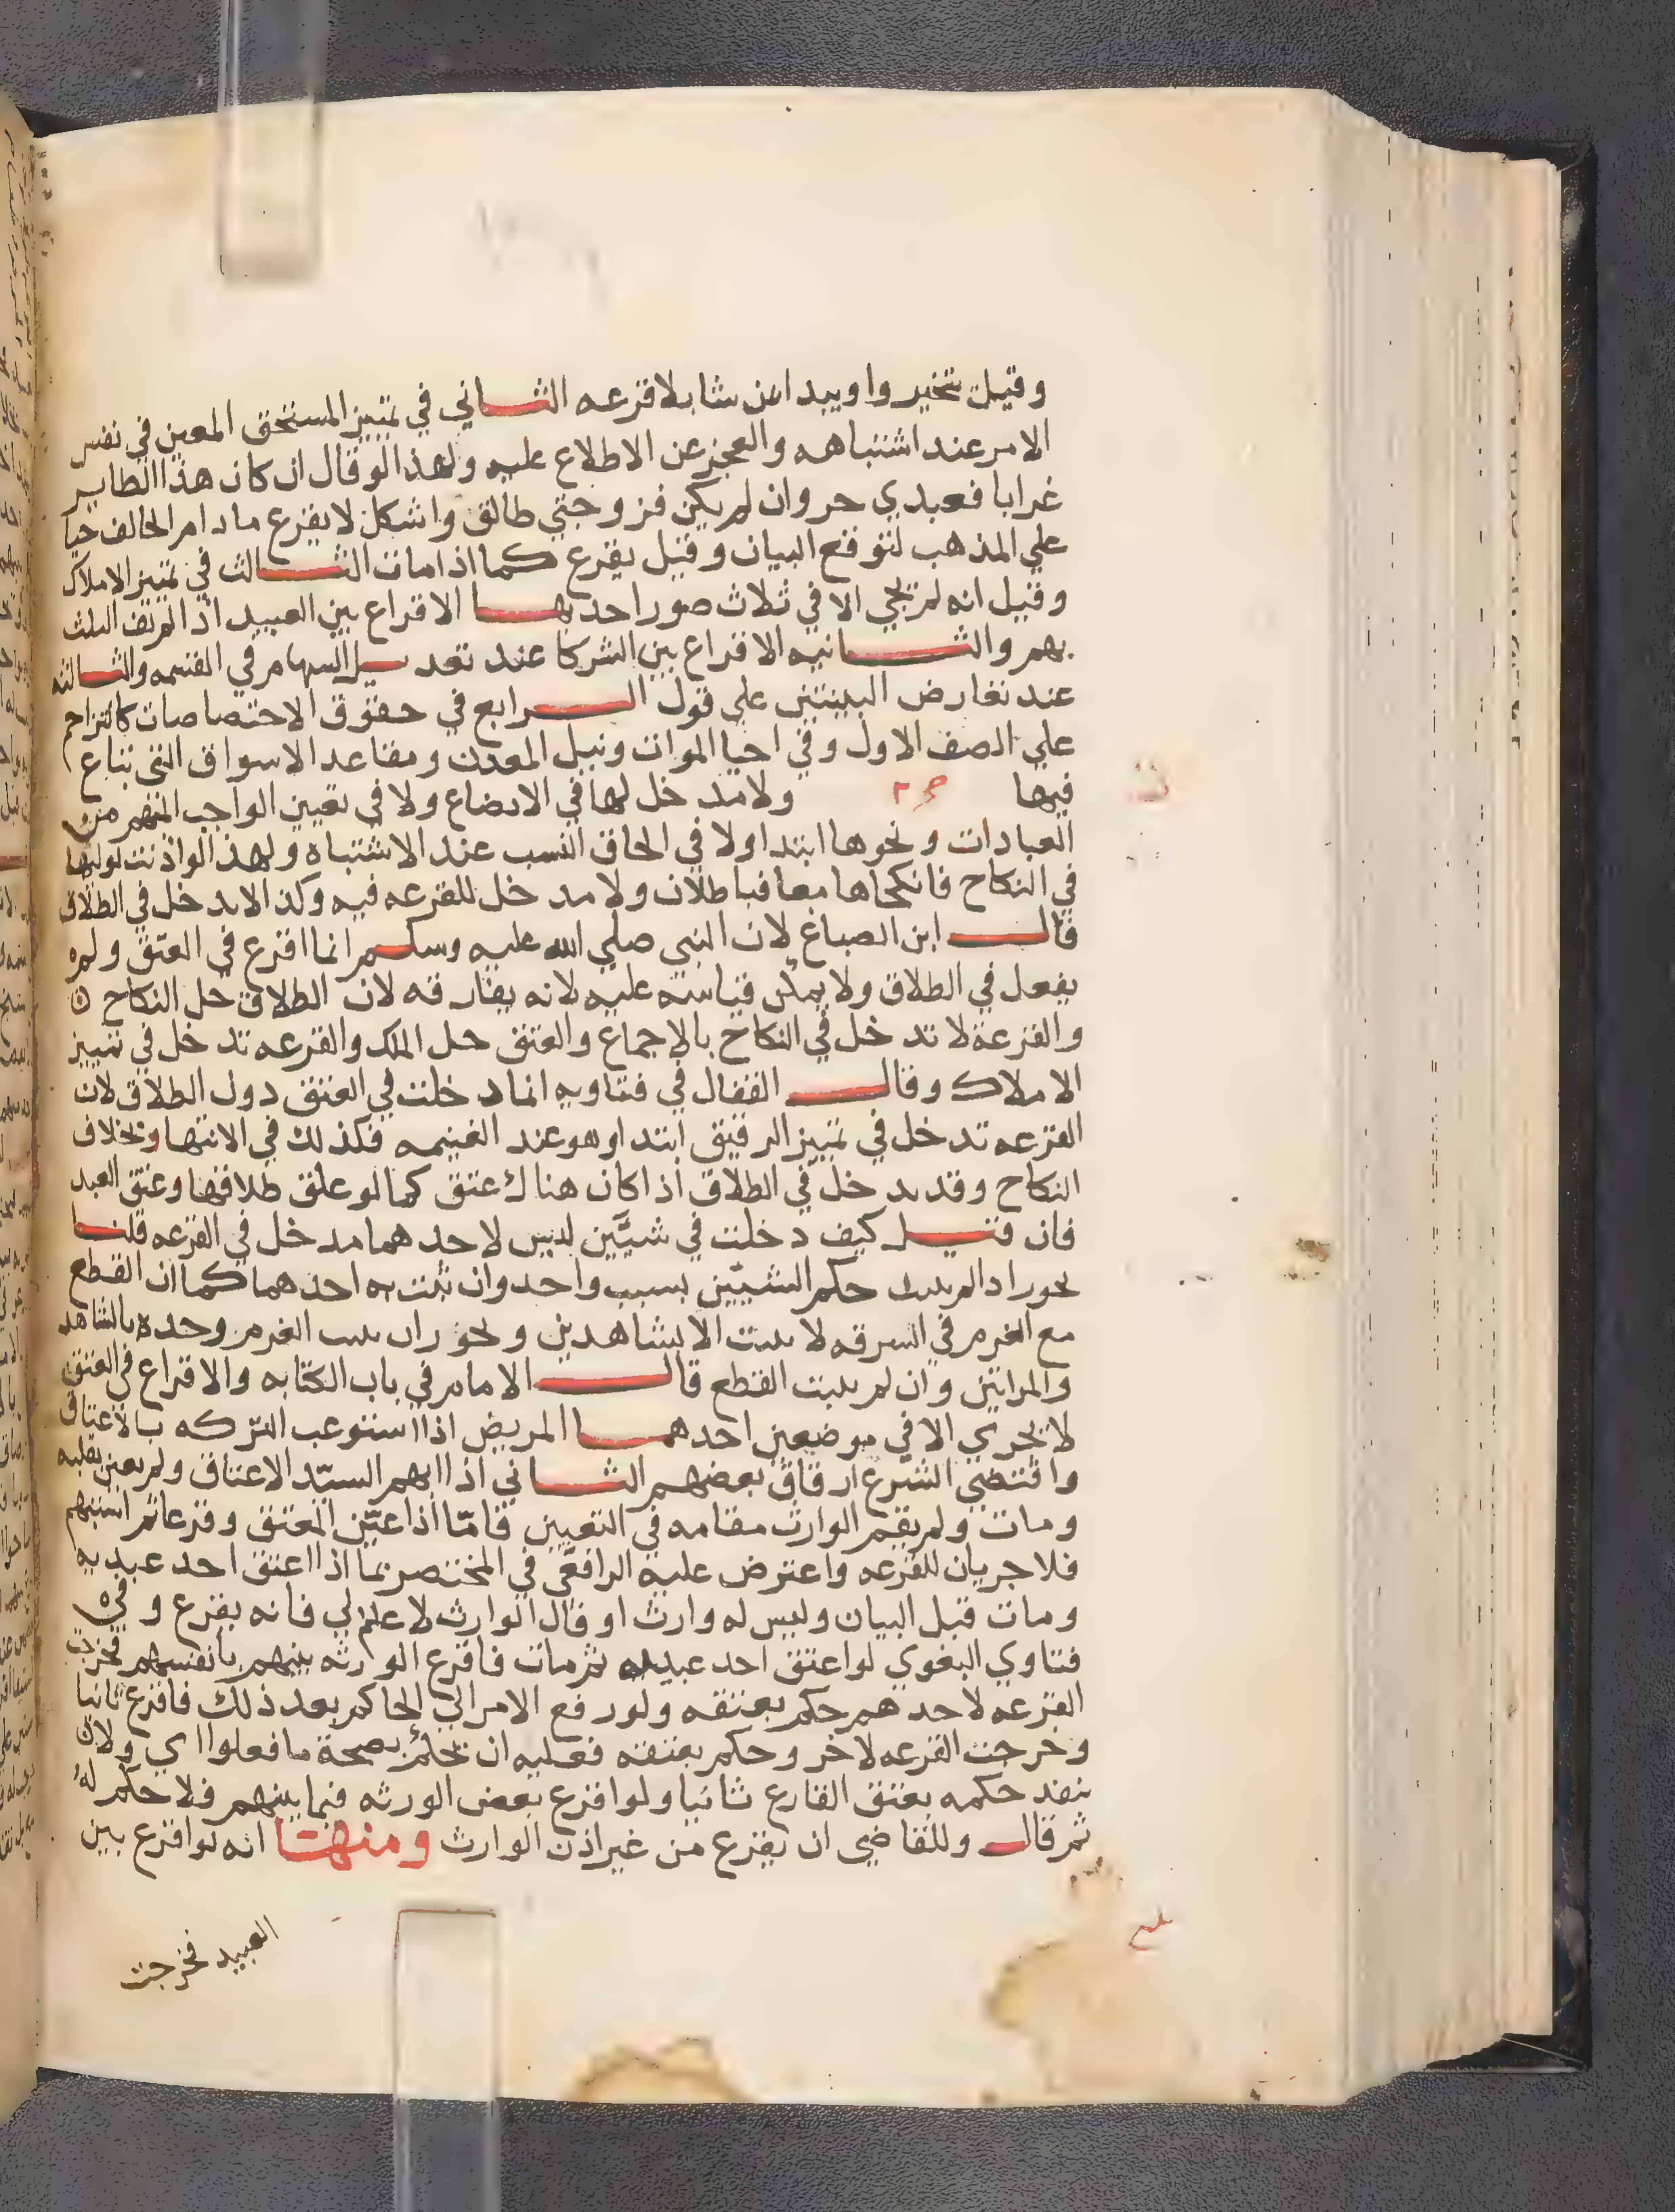 وقيل يتخيروا ويبدا بمن شا بلا قرعه الثاني في تمييز المستحق المعين في نفس
الامر عند اشتباهه والعجز عن الاطلاع عليه ولهذا لو قال ان كان هذا الطاير
غرابا فعبدي حر وان لم يكن فزوجتي طالق واشكل لا يقرع ما دام الحالف حيا
علي المذهب لتوقع البيان وقيل يقرع كما اذا مات الثالث في تمييز الاملاك
وقيل انه لم يجي الا في ثلاث صور احدها الاقراع بين العبيد اذا لم يف الثلث
بهم والثانيه الاقراع بين الشركا عند تعديل السهام في القسمه والثالثه
عند تعارض البينتين علي قول الرابع في حقوق الاختصاصات كالتزاحم
علي الصف الاول وفي احيا الموات ونيل المعدن ومقاعد الاسواق التي تباع
فيها ولا مدخل لها في الابضاع ولا في تعيين الواجب المبهم من
العبادات ونحوها ابتدا ولا في الحاق النسب عند الاشتباه ولهذا لو اذنت لوليها
في النكاح فانكحاها معا فباطلان ولا مدخل للقرعه فيه وكذا لا يدخل في الطلاق
قال ابن الصباغ لان النبي صلي الله عليه وسلم انما اقرع في العتق ولم
يفعل في الطلاق ولا يمكن قياسه عليه لانه يفارقه لان الطلاق حل النكاح
والقرعة لا تدخل في النكاح بالاجماع والعتق حل الملك والقرعه تدخل في تمييز
الاملاك وقال القفال في فتاويه انما دخلت في العتق دون الطلاق لان
القرعه تدخل في تمييز الرقيق ابتدا وهو عند الغنيمه فكذلك في الانتها وبخلاف
النكاح وقد يدخل في الطلاق اذا كان هناك عتق كما لو علق طلاقها وعتق العبد
فان قيل كيف دخلت في شيئين ليس لاحدهما مدخل في القرعه قلنا
يجوز اذا لم يثبت حكم الشيئين بسبب واحد وان ثبت به احدهما كما ان القطع
مع الغرم في السرقه لا يثبت الا بشاهدين ويجوز ان يثبت الغرم وحده بالشاهد
والمراتين وان لم يثبت القطع قال الامام في باب الكتابه والاقراع في العتق
لا يجري الا في موضعين احدهما المريض اذا استوعب التركه بالاعتاق
واقتضي الشرع ارقاق بعضهم الثاني اذا ابهم السيد الاعتاق ولم يعين بقلبه
ومات ولم يقم الوارث مقامه في التعيين فامّا اذا عيّن المعتق وفرعناثم استبهم
فلا جريان للقرعه واعترض عليه الرافعي في المختصر بما اذا اعتق احد عبديه
ومات قبل البيان وليس له وارث او قال الوارث لا علم لي فانه يقرع وفي
فتاوي البغوي لو اعتق احد عبيده ثم مات فاقرع الورثه بينهم بانفسهم فخرجت
القرعه لاحدهم حكم بعتقه ولو رفع الامر الي الحاكم بعد ذلك فاقرع ثانيا
وخرجت القرعه لاخر وحكم بعتقه فعليه ان يحكم بصحة ما فعلوا اي ولان
ينفد حكمه بعتق القارع ثانيا ولو اقرع بعض الورثه فيما بينهم فلا حكم له
ثم قال وللقاضي ان يقرع من غير اذن الوارث ومنها انه لو اقرع بين
العبيد فخرجت